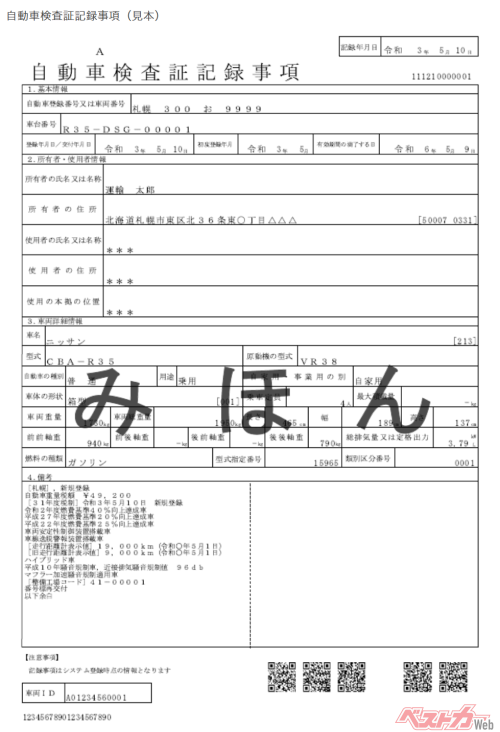 自動車検査証記録事項（見本）
記録年月日 令和 3年 5月 10日
A
自動車検査証記録事項
111210000001
1.基本情報
自動車登録番号又は車両番号 札幌 300 お 9999
車台番号 R35-DSG-00001
登録年月日／交付年月日 令和 3年 5月 10日 初度登録年月 令和 3年 5月 有効期間の満了する日 令和 6年 5月 9日
2.所有者・使用者情報
所有者の氏名又は名称 運輸 太郎
所有者の住所 北海道札幌市東区北36条東〇丁目△△△ [50007 0331]
使用者の氏名又は名称 ***
使用者の住所 ***
使用の本拠の位置 ***
3.車両詳細情報
車名 ニッサン [213]
型式 CBA-R35 原動機の型式 VR38
自動車の種別 普通 用途 乗用 自家用・事業用の別 自家用
車体の形状 箱型 [001] 乗車定員 4人 最大積載量 -kg
みほん
車両重量 kg 車両総重量 kg 長さ cm 幅 189 高さ 137cm
前前軸重 940kg 前後軸重 -kg 後前軸重 -kg 後後軸重 790kg 総排気量又は定格出力 3.79 kW L
燃料の種類 ガソリン 型式指定番号 15965 類別区分番号 0001
4.備考
[札幌]，新規登録
自動車重量税額 ￥49，200
[31年度税制]令和3年5月10日 新規登録
令和2年度燃費基準40％向上達成車
平成27年度燃費基準20％向上達成車
平成22年度燃費基準25％向上達成車
車両安定性制御装置搭載車
車線逸脱警報装置搭載車
[走行距離計表示値]19，000km（令和〇年5月1日）
[旧走行距離計表示値]9，000km（令和〇年5月1日）
ハイブリッド車
平成10年騒音規制車，近接排気騒音規制値 96db
マフラー加速騒音規制適用車
[整備工場コード]41-00001
番号標再交付
以下余白
【注意事項】
記録事項はシステム登録時点の情報となります
車両ID A01234560001
12345678901234567890
ベストカーWeb